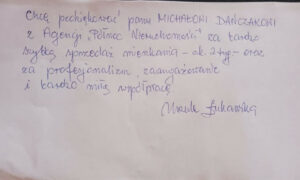 Chcę podziękować panu MICHAŁOWI DAŃCZAKOWI
z Agencji „Północ Nieruchomości” za bardzo
szybką sprzedaż mieszkania - ok. 2 tyg. - oraz
za profesjonalizm, zaangażowanie
i bardzo miłą współpracę
Łukawska